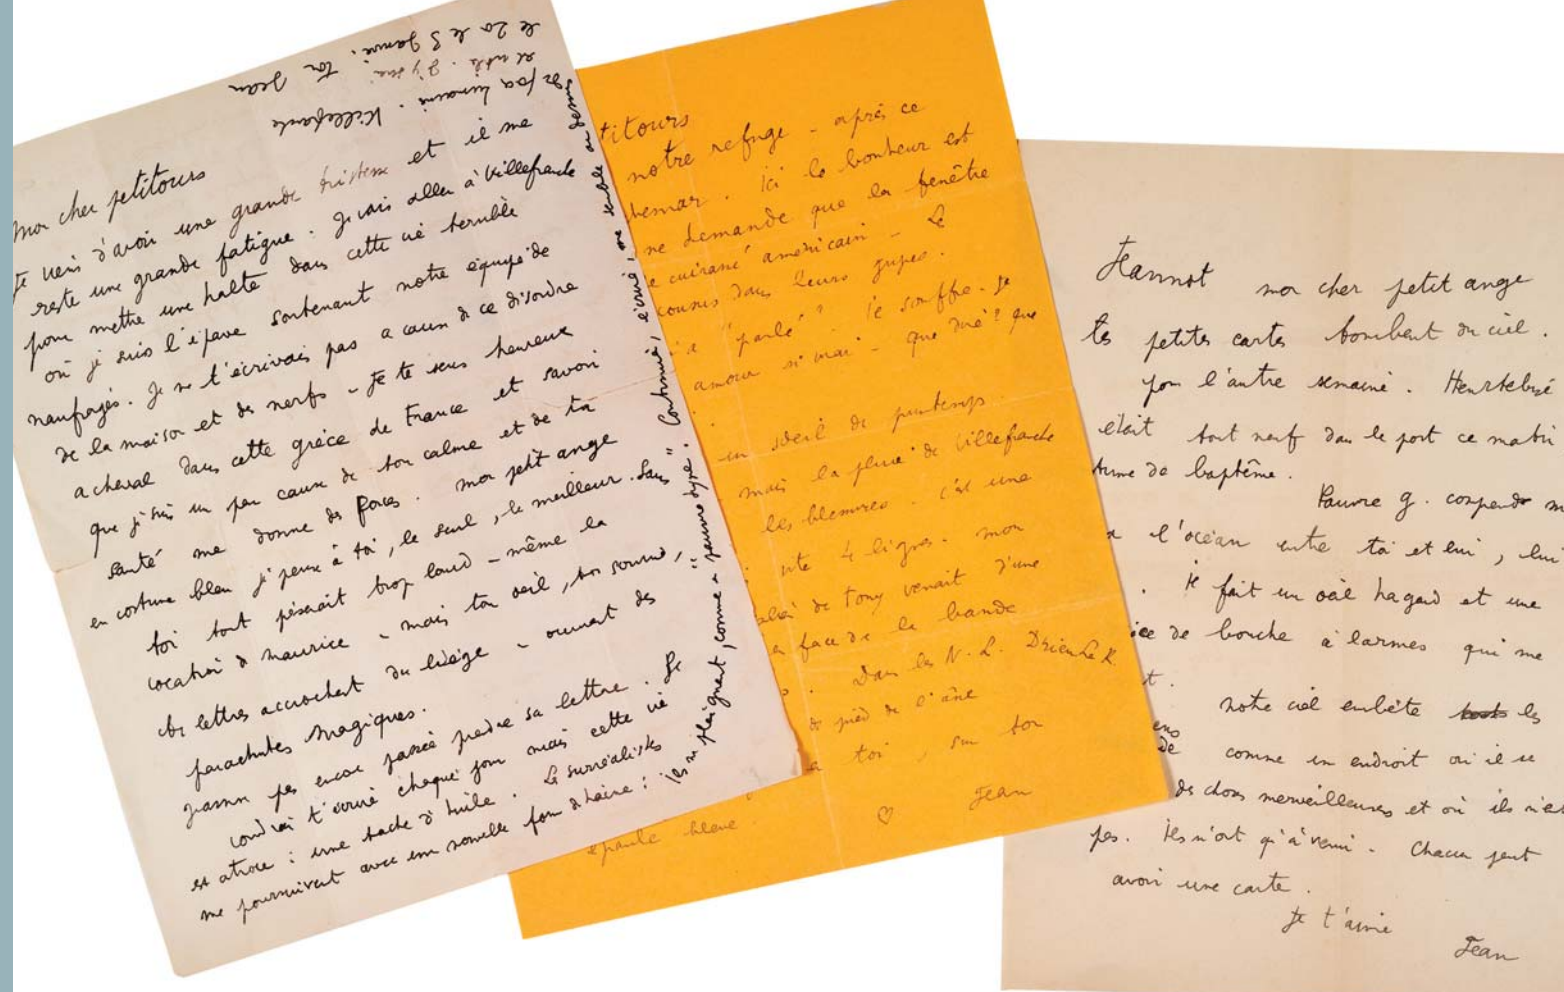 Mon cher petitours
Je viens d'avoir une grande tristesse et il me
reste une grande fatigue. Je vais aller à Villefranche
pour mettre une halte dans cette vie terrible
où je suis l'épave soutenant notre équipe de
naufragés. Je ne t'écrivais pas a cause de ce désordre
de la maison et des nerfs - Je te sens heureux
a cheval dans cette grâce de France et savoir
que je suis un peu cause de ton calme et de ta
santé me donne des forces. Mon petit ange
en costume bleu je pense à toi, le seul, le meilleur. Sans
toi tout pèserait trop lourd - même la
location de Maurice - mais ton œil, ton sourire,
tes lettres accrochent du liège - ouvrent des
parachutes magiques.
pas encore passée sa lettre. Je
voudrai t'écrire chaque jour mais cette vie
est atroce : une tache d'huile. Les surréalistes
me poursuivent avec une nouvelle forme de haine :
ils me plaignent, comme "pauvre type". Continue, écris, me semble au dessus
de. Villefranche
et utile. J'y serai
le 2 o le 3 Janvier. Ton Jean
titours
notre refuge - après ce
. Ici le bonheur est
ne demande que la fenêtre
e cuirassé américain - Le
cousus dans leurs jupes.
a "parlé"? Je souffre. Je
amour si vrai - que dire? que
un soleil de printemps.
mais la pluie de Villefranche
les blessures - c'est une
vite 4 lignes. Mon
de Tony venait d'une
en face de la bande
. Dans les N. L. Drieu La R.
pied de l'âne
toi, sur ton
épaule bleue
♡ Jean
Jeannot mon cher petit ange
tes petites cartes tombent du ciel.
pour l'autre semaine. Heurtebise
était tout neuf dans le port ce matin
tume de baptême.
Pauvre G.
l'océan entre toi et lui, lui
. Il fait un œil hagard et une
ice de bouche à larmes qui me
t.
Notre ciel embête les
ens
de comme un endroit où il se
des choses merveilleuses et où ils n'
pas. Ils n'ont qu'à venir. Chacun peut
avoir une carte.
Je t'aime
Jean